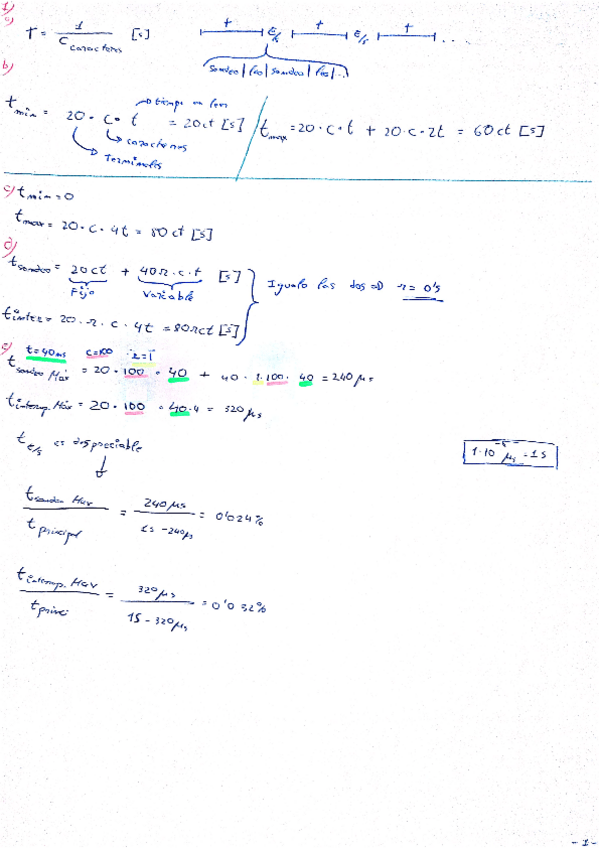 1/
a) T = 1 / C caracteres [s]
t E/s t E/s t ...
sondeo | leo | sondeo | leo | ...
b)
t min = 20 · c · t = 20ct [s] / t max = 20 · c · t + 20 · c · 2t = 60ct [s]
→ tiempo en leer
→ caracteres
→ terminales
c) t min = 0
t max = 20 · c · 4t = 80ct [s]
d)
t sondeo = 20ct + 40r · c · t [s]
Fijo Variable
Igualo las dos ⇒ r = 0'5
t interr = 20 · r · c · 4t = 80rct [s]
e) t=40ns c=100 r=1
t sondeo Máx = 20 · 100 · 40 + 40 · 1 · 100 · 40 = 240 μs
t interrup. Máx = 20 · 100 · 40 · 4 = 320 μs
t e/s es despreciable
1·10 μs = 1s
t sondeo Max / t principal = 240μs / 1s - 240μs = 0'024%
t interrup. Max / t princi = 320μs / 1s - 320μs = 0'032%
- 1 -